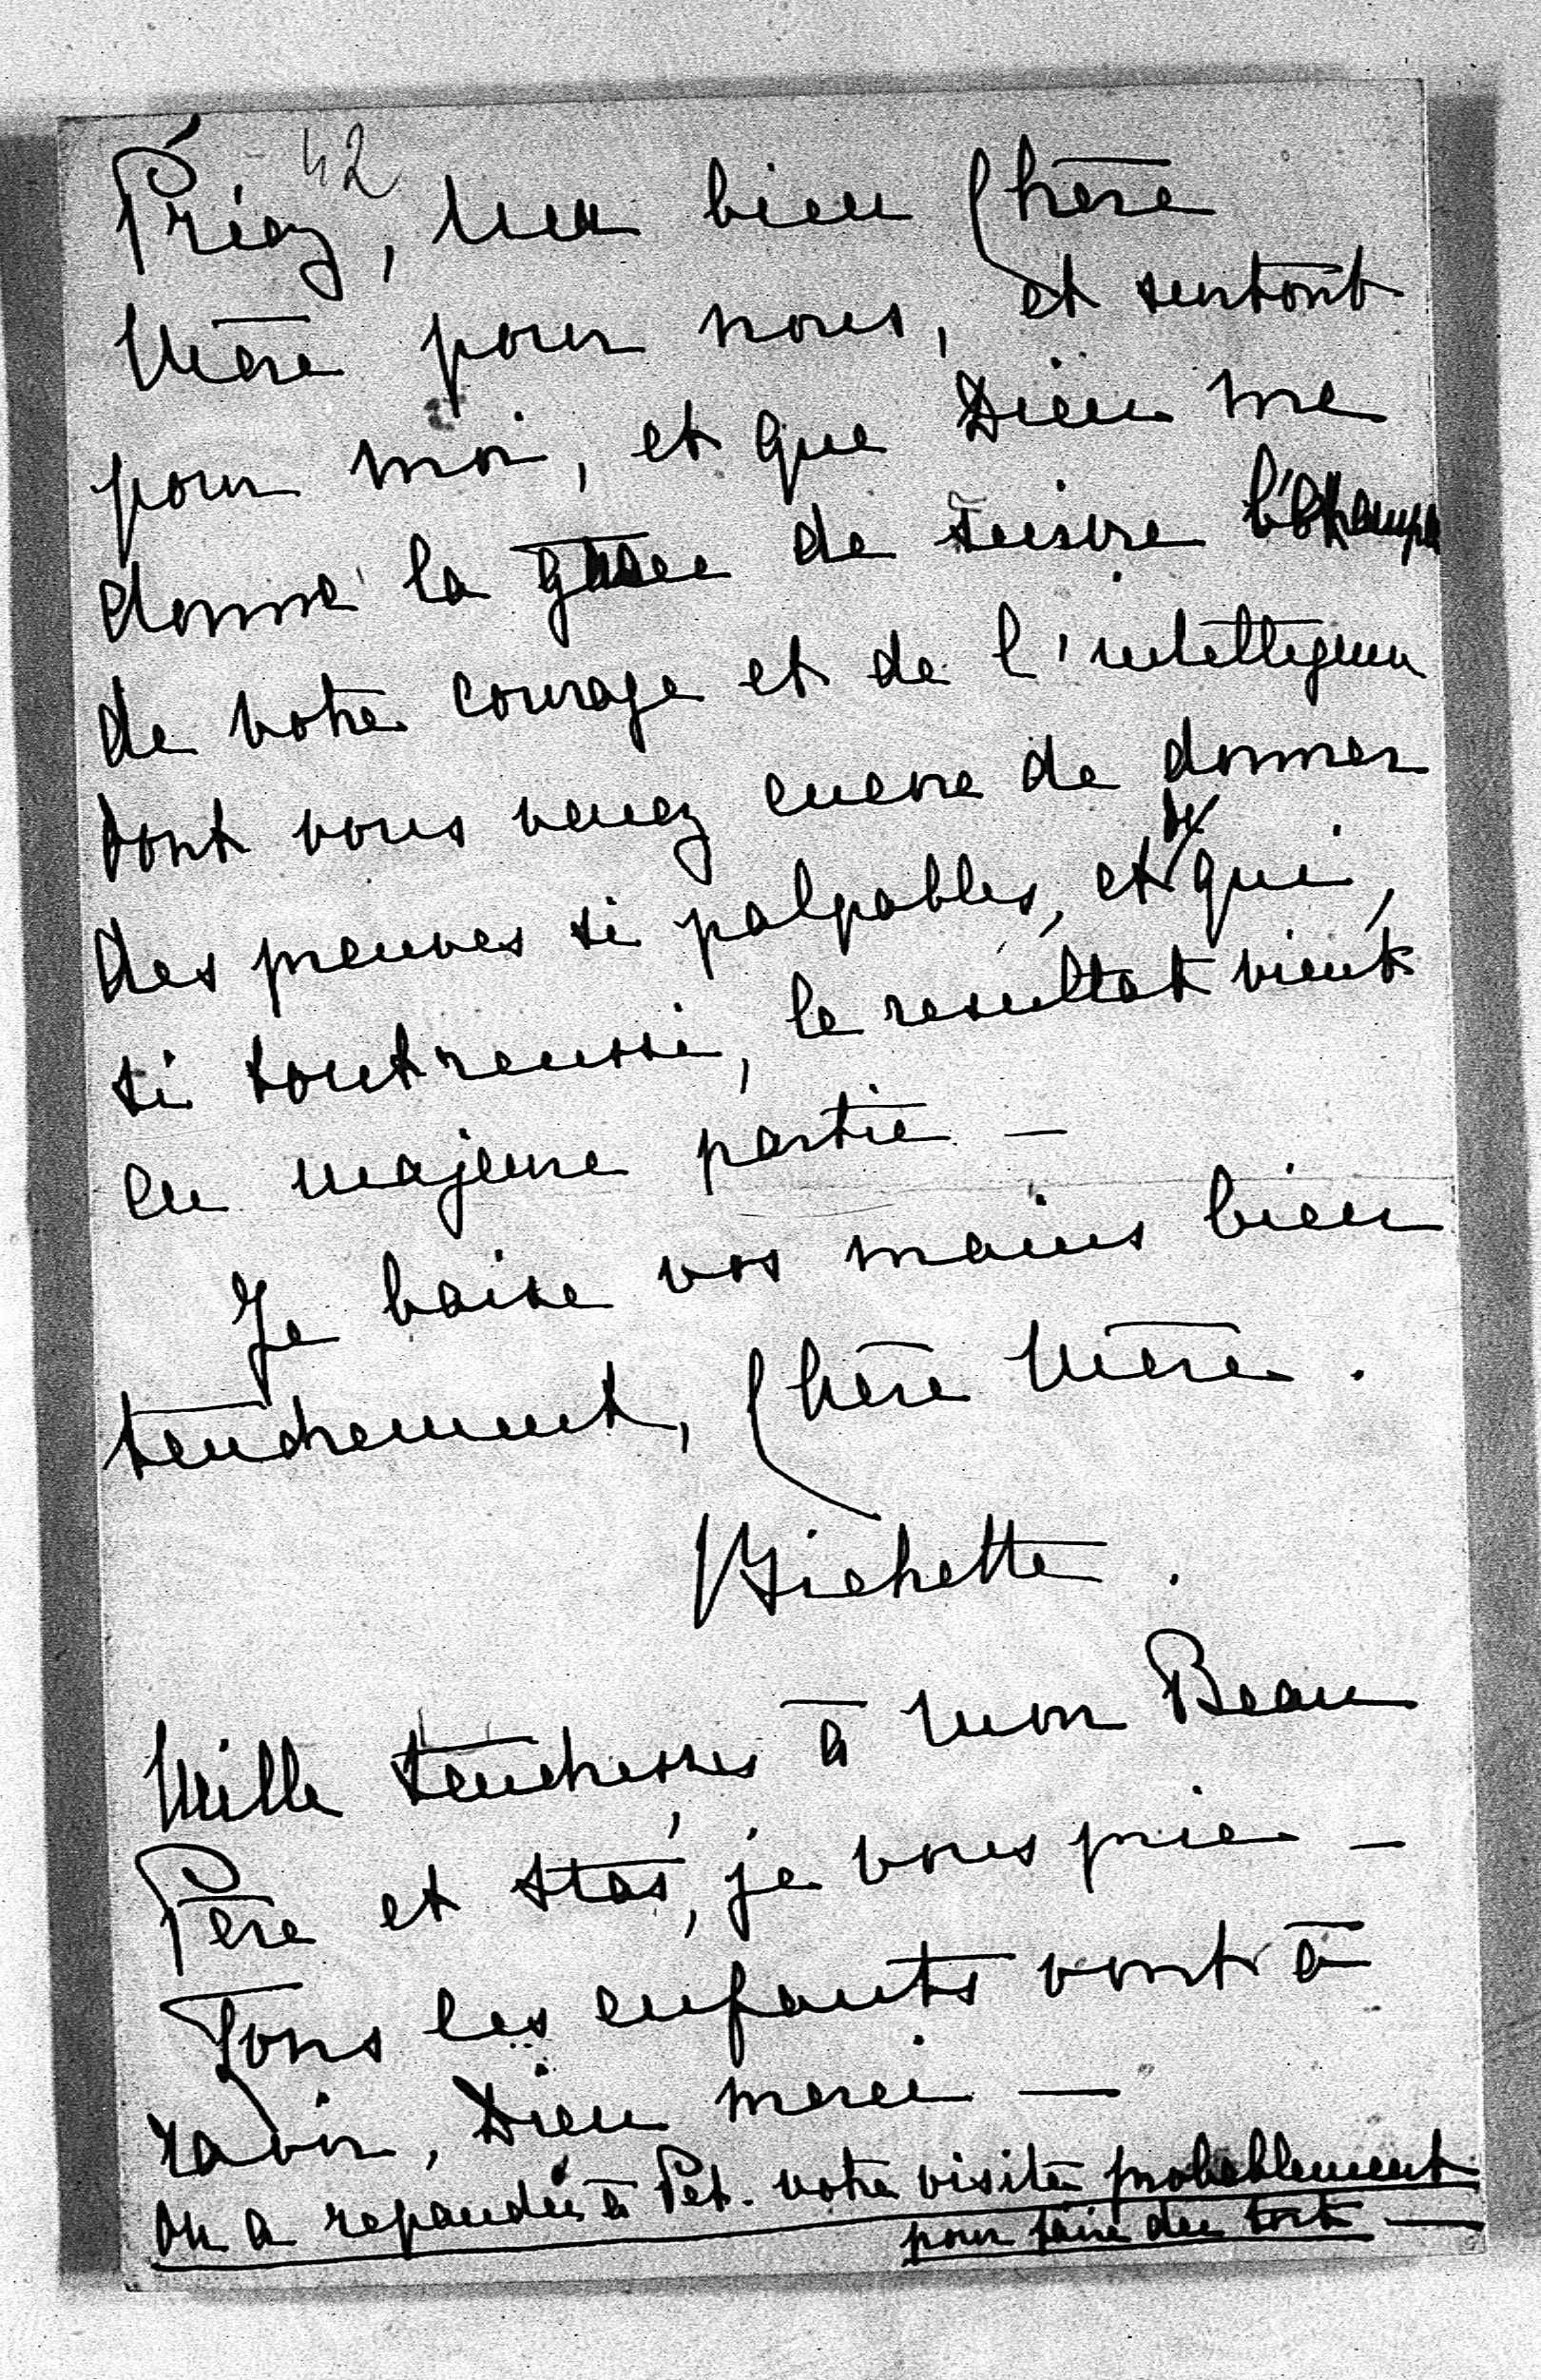 42
Priez, ma bien Chère
Mère pour nous, et surtout
pour moi, et que Dieu me
donne la grace de suivre l'exemple
de votre courage et de l'intelligence
dont vous venez encore de donner
des preuves si palpables, et de qui,
si tout reussi, le resultat vient
en majeure partie —
Je baise vos mains bien
tendrement, Chère Mère.
Bichette.
Mille tendresses à mon Beau
Père et Stas, je vous prie —
Tous les enfants vont à
ravir, Dieu merci —
on a repandu à Pet. votre visite probablement
pour faire du tort —